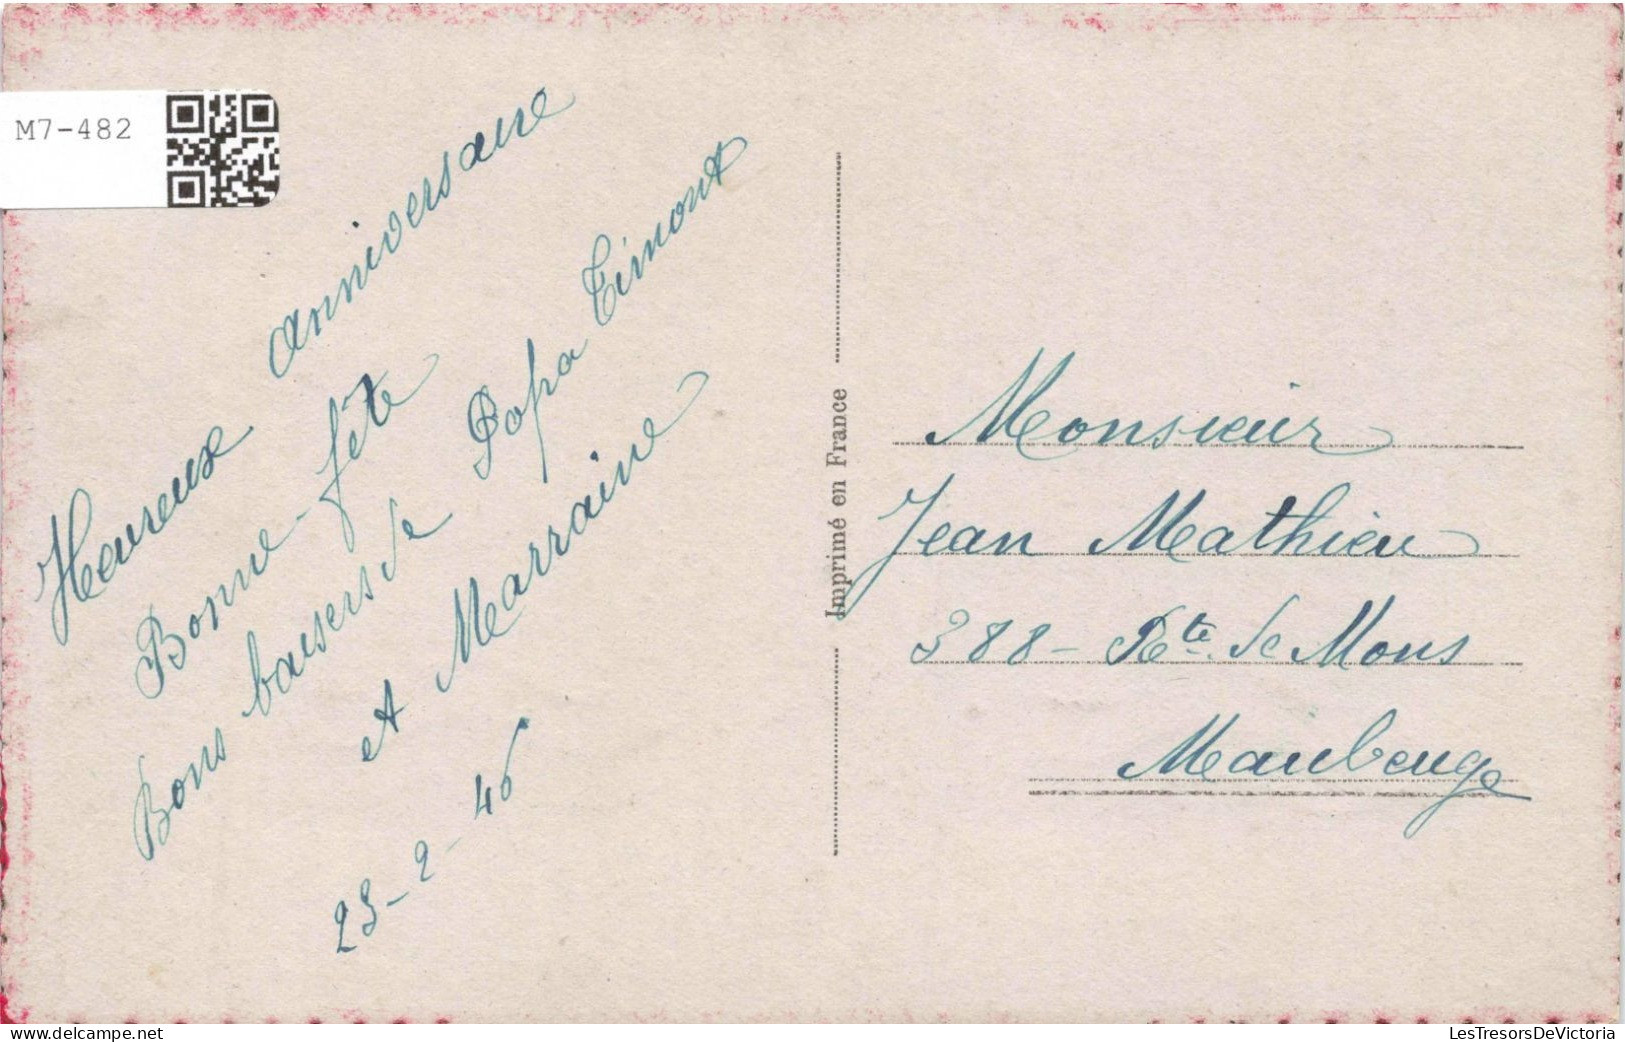 M7-482
Heureux anniversaire
Bonne fête
Bons baisers de Papa
et Marraine
23-2-46
Imprimé en France
Monsieur
Jean Mathieu
388 - Rte de Mons
Maubeuge
delcampe.net
LesTresorsDeVictoria